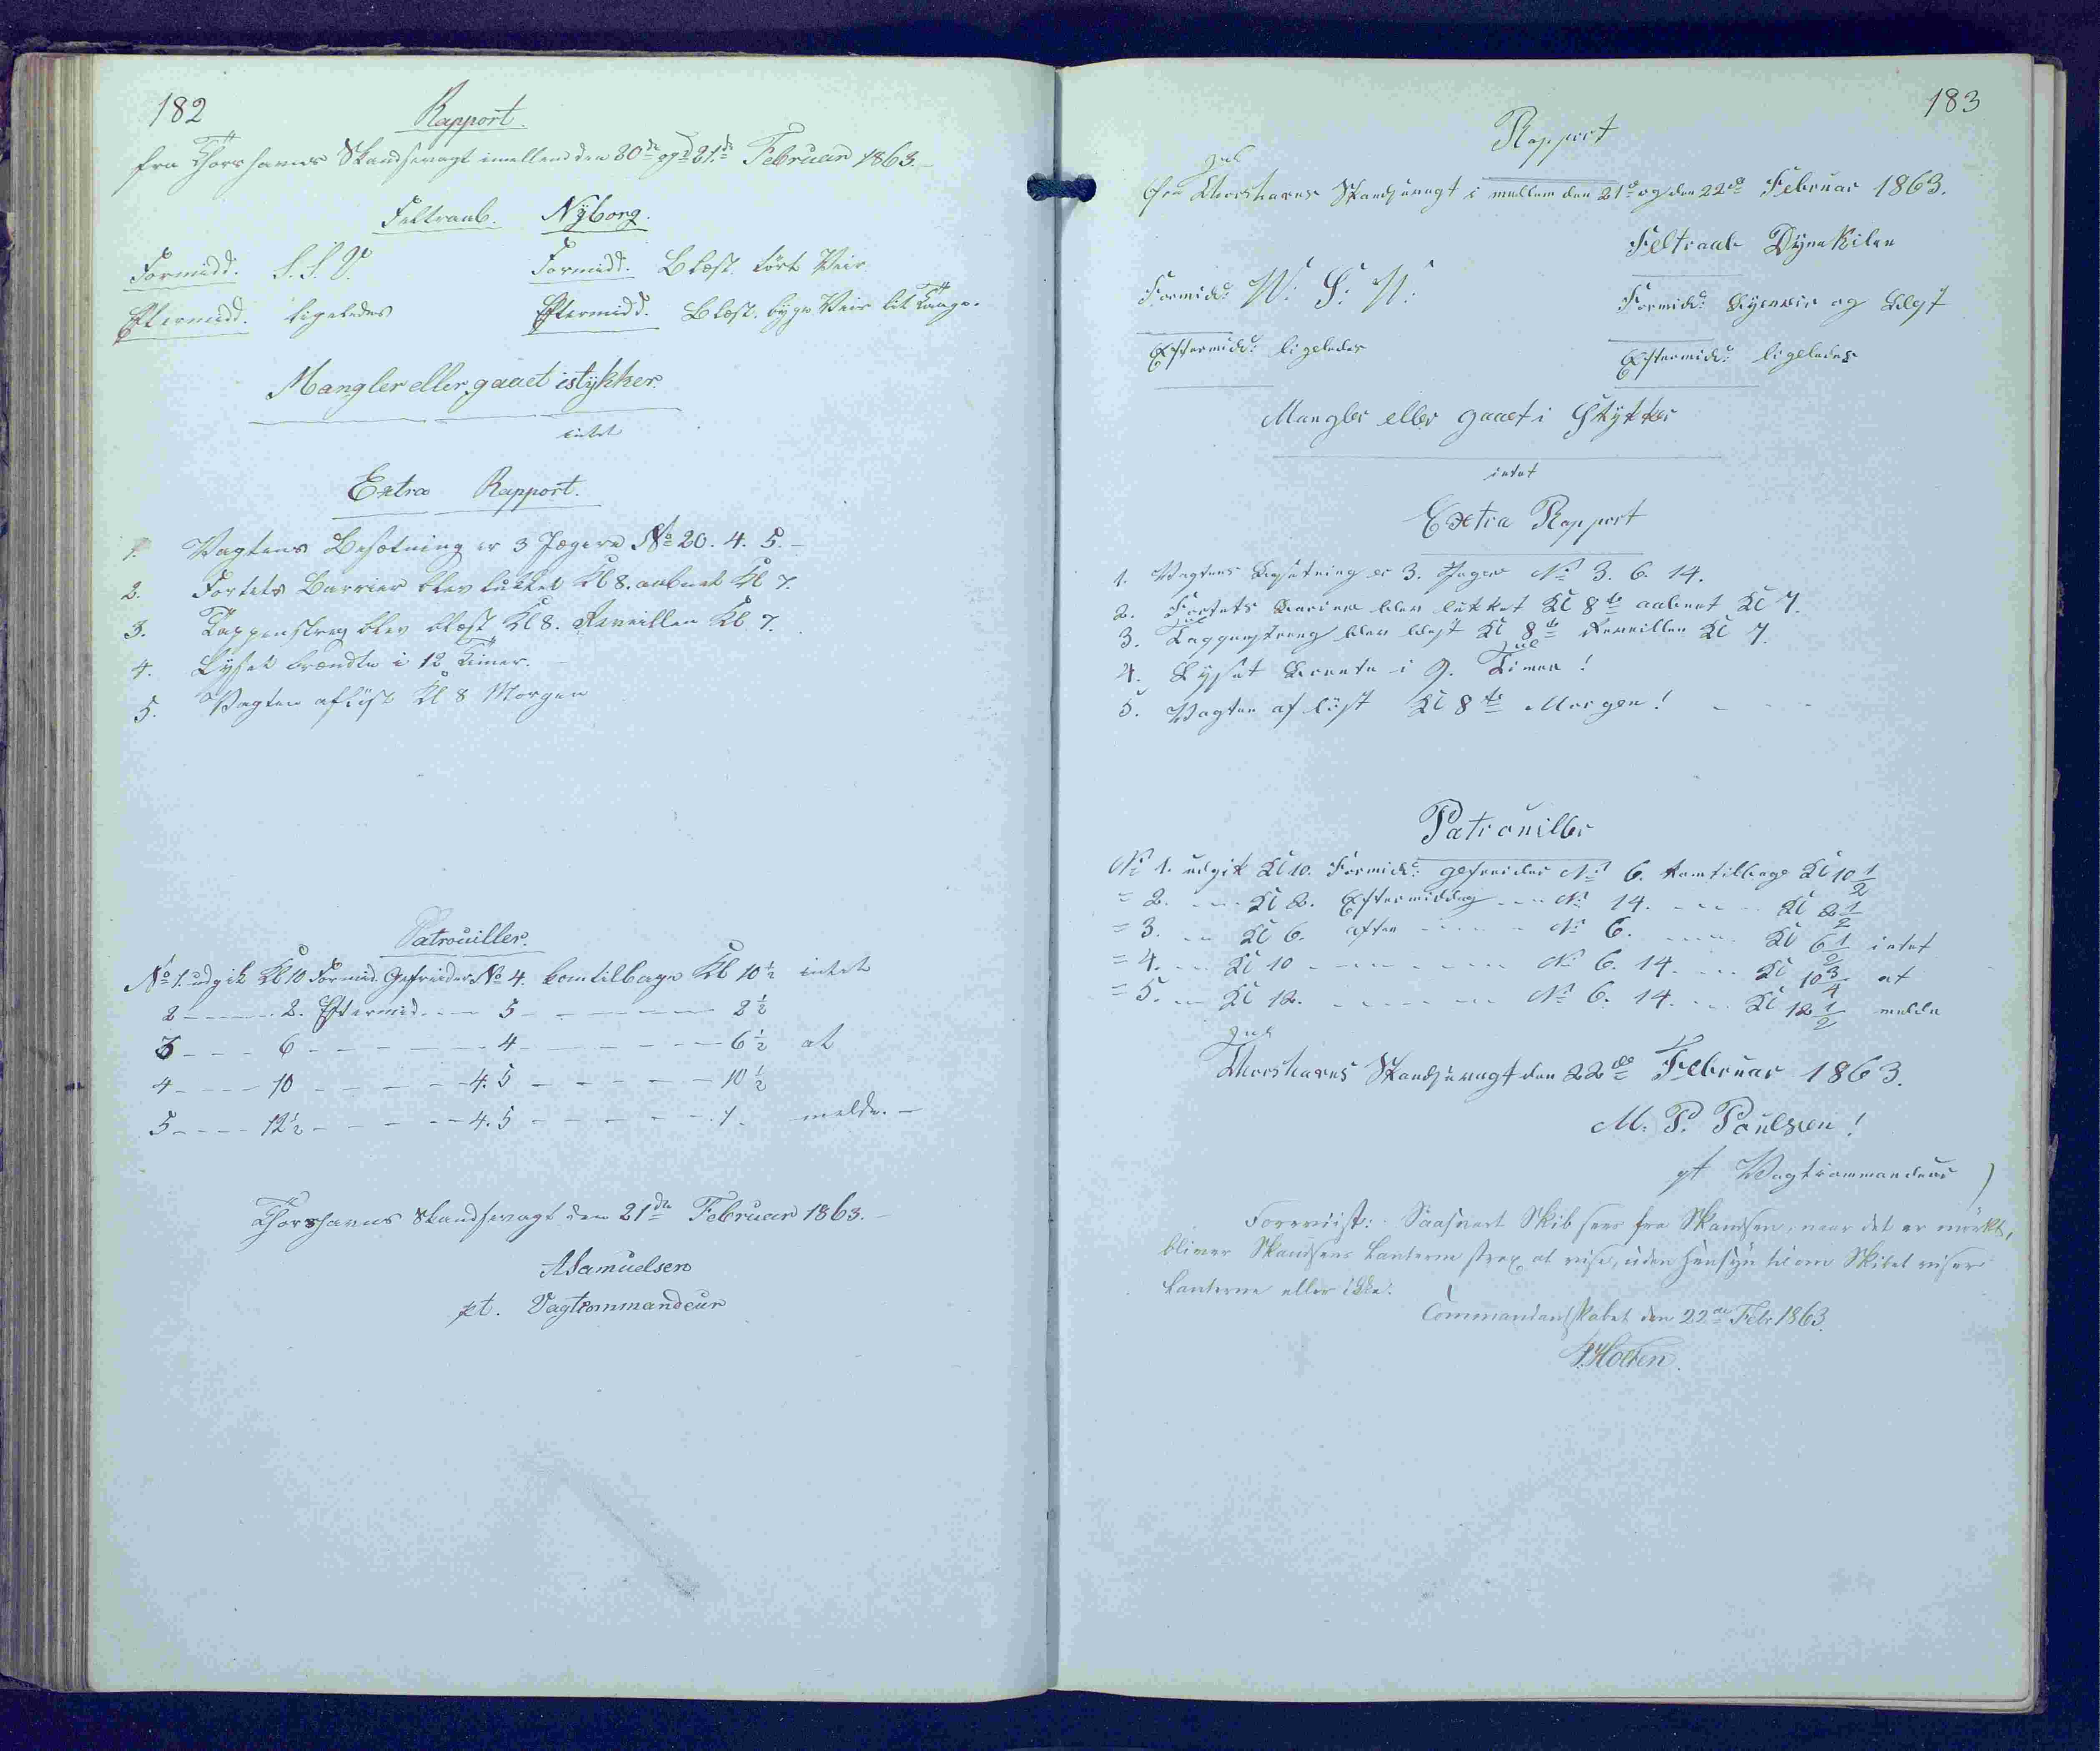 182
Rapport.
fra Thorshavns Skandsevagt imellem den 20de og 21de Februar 1863.
Feltraab. Nÿborg.
Formidd. S.S.V. Formidd. Blæst tört Veir
Eftermidd. ligeledes Eftermidd. Blæst. byge Veir lit Taage.
Mangler eller gaaet istÿkker.
intet
Extra Rapport.
1. Vagtens Besætning er 3 Jægere No 20. 4. 5. –
2. Fortets Barrier blev lukket Kl 8. aabnet Kl 7.
3. Tappenstreg blev blæst Kl 8. Reveillen Kl 7.
4. Lyset brændte i 12 Timer. –
5. Vagten aflöst Kl 8 Morgen
Patrouiller.
No 1. udgik Kl 10 Formid. Gefreider No 4. kom tilbage Kl 10 1/2 intet
2 – – – – 2. Eftermid. – – – 5 – – – – – – 2 1/2
3 – – – – 6 – – – – – – – 4 – – – – – – 6 1/2 at
4 – – – – 10 – – – – – – 4. 5 – – – – – – 10 1/2
5 – – – – 12 1/2 – – – – – – 4. 5 – – – – – – 1. melde. –
Thorshavns Skandsevagt den 21de Februar 1863. –
A Samuelsen
pt. Vagtcommandeur
183
Rapport
Fra Thorshavns Skandsevagt i mellem den 21de og den 22de Februar 1863.
Feltraab Dÿnekilen
Formidd: V. S. V. Formidd: Bÿeveir og Blæst
Eftermidd: ligeledes Eftermidd: ligeledes
Mangler eller gaaet i Stÿkker
intet
Extra Rapport
1. Vagtens Besætning er 3. Jæger No 3. 6. 14.
2. Fortets Barier blev lukket Kl 8te aabnet Kl 7.
3. Tappenstreeg blev blæst Kl 8te Reveillen Kl 7.
4. Lyset Brente i 9. Timer!
5. Vagten aflöst Kl 8te Morgen! – – –
Patrouiller
No 1. udgik Kl 10. Formidd: gefreider No 6. kom tilbage Kl 10 1/2
= 2. – – – Kl 2. Eftermiddag – – No 14. – – – Kl 2 1/2
= 3. – – Kl 6. Aften – – – – No 6. – – – Kl 6 1/2 intet
= 4. – – Kl 10 – – – – – – No 6. 14. – – Kl 10 3/4 at
= 5. – – Kl 12. – – – – – – No 6. 14. – – Kl 12 1/2 melde
Thorshavns Skandsevagt den 22de Februar 1863.
M. P. Poulsen!
pt Vagtcommandeur
Saasnart Skib sees fra Skandsen, naar det er mörkt,
bliver Skandsens Lanterne strax at vise, uden Hensyn til om Skibet viser
Lanterne eller ikke.
Commandantskabet den 22de Febr 1863.